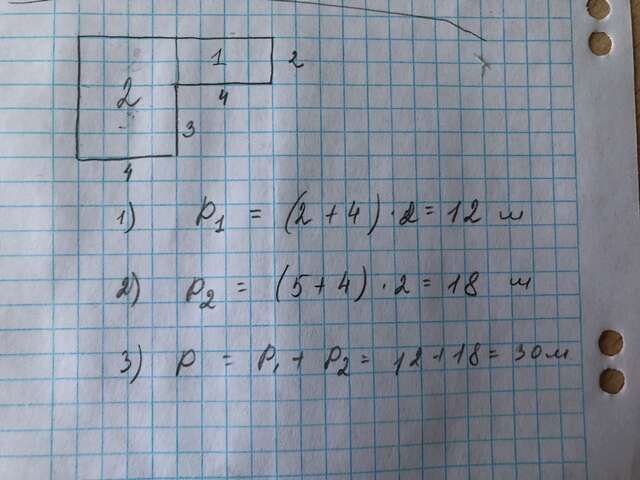 1 2
2 4
3
4
1) P₁ = (2 + 4) · 2 = 12 м
2) P₂ = (5 + 4) · 2 = 18 м
3) P = P₁ + P₂ = 12 + 18 = 30 м